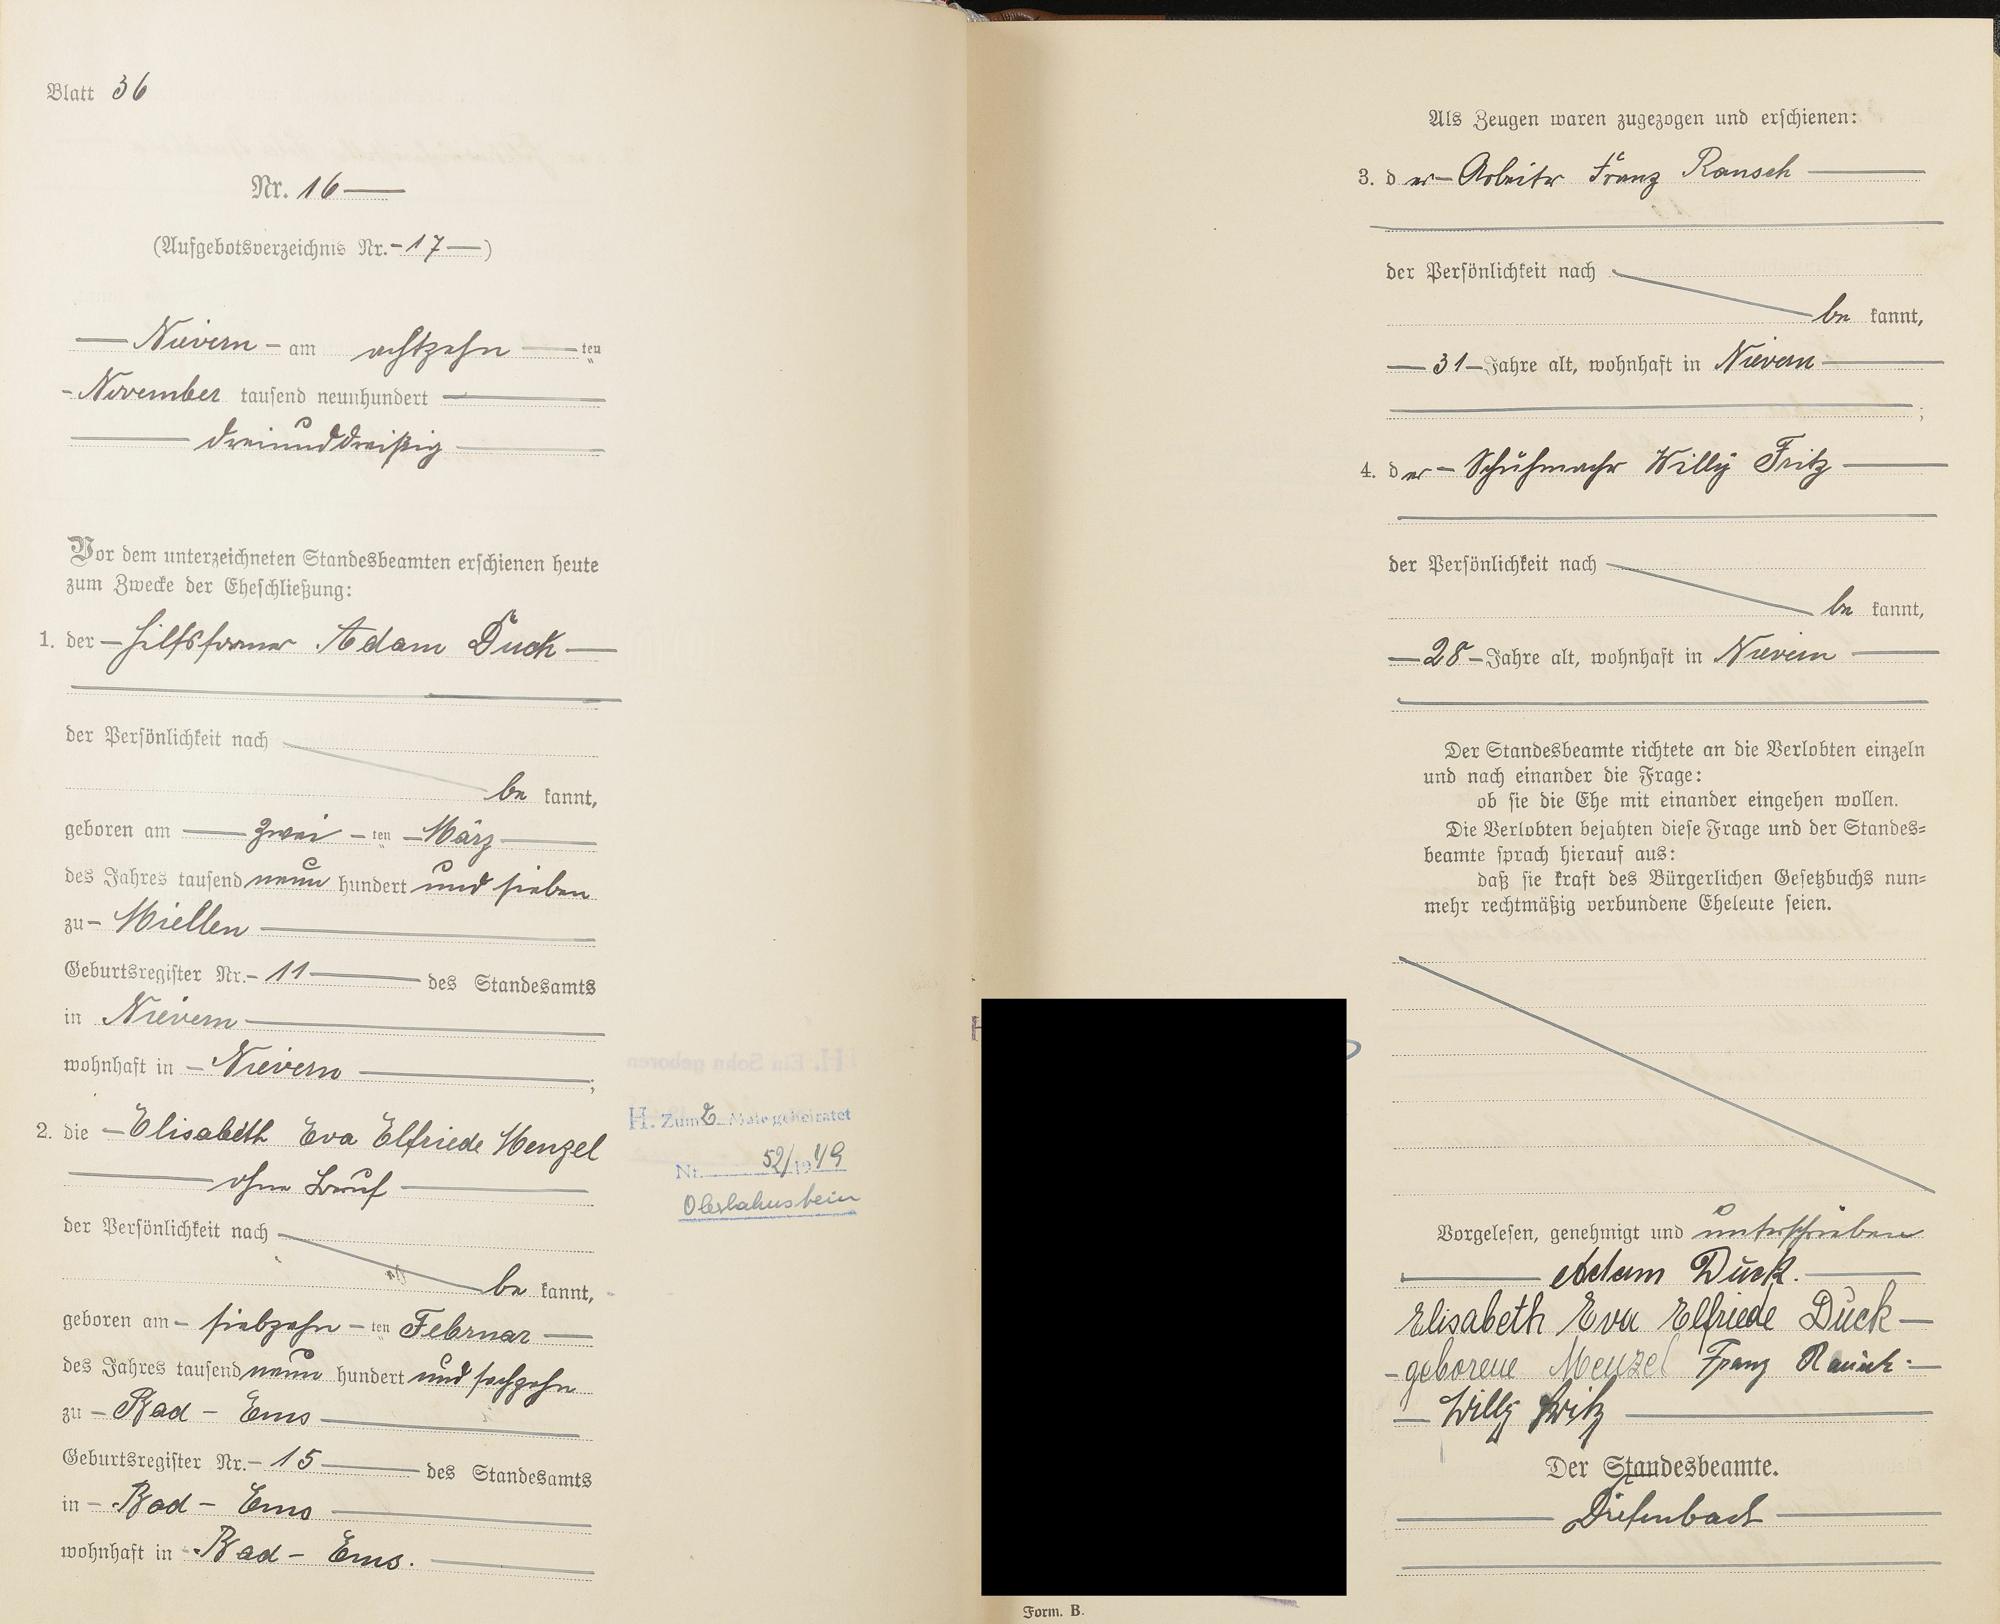 Blatt 36
Nr. 16
(Aufgebotsverzeichnis Nr. 17)
Nievern am achtzehn ten
November tausend neunhundert
dreiunddreißig
Vor dem unterzeichneten Standesbeamten erschienen heute
zum Zwecke der Eheschließung:
1. der Hilfsformer Adam Duck
der Persönlichkeit nach
be kannt,
geboren am zwei ten März
des Jahres tausend neun hundert und sieben
zu Miellen
Geburtsregister Nr. 11 des Standesamts
in Nievern
wohnhaft in Nievern ;
2. die Elisabeth Eva Elfriede Menzel
ohne Beruf
der Persönlichkeit nach
be kannt,
geboren am siebzehn ten Februar
des Jahres tausend neun hundert und sechzehn
zu Bad-Ems
Geburtsregister Nr. 15 des Standesamts
in Bad-Ems
wohnhaft in Bad-Ems.
H. Zum 2. Male geheiratet
Nr. 52/1949
Oberlahnstein
Als Zeugen waren zugezogen und erschienen:
3. der Arbeiter Franz Rausch
der Persönlichkeit nach
be kannt,
31 Jahre alt, wohnhaft in Nievern
;
4. der Schuhmacher Willy Fritz
der Persönlichkeit nach
be kannt,
28 Jahre alt, wohnhaft in Nievern
Der Standesbeamte richtete an die Verlobten einzeln
und nach einander die Frage:
ob sie die Ehe mit einander eingehen wollen.
Die Verlobten bejahten diese Frage und der Standes=
beamte sprach hierauf aus:
daß sie kraft des Bürgerlichen Gesetzbuchs nun=
mehr rechtmäßig verbundene Eheleute seien.
Vorgelesen, genehmigt und unterschrieben
Adam Duck.
Elisabeth Eva Elfriede Duck
geborene Menzel Franz Rausch
Willy Fritz
Der Standesbeamte.
Diefenbach
Form. B.